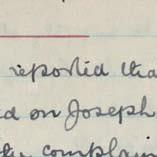 reported tha
ed on Joseph
complain